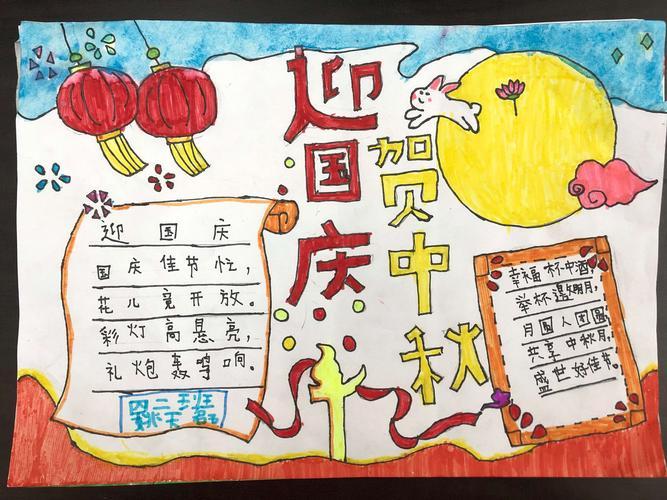 迎国庆
贺中秋
迎国庆
国庆佳节忙，
花儿竞开放。
彩灯高悬亮，
礼炮轰鸣响。
四二班
幸福杯中酒，
举杯邀明月，
月圆人团圆
共享中秋月，
盛世好佳节。